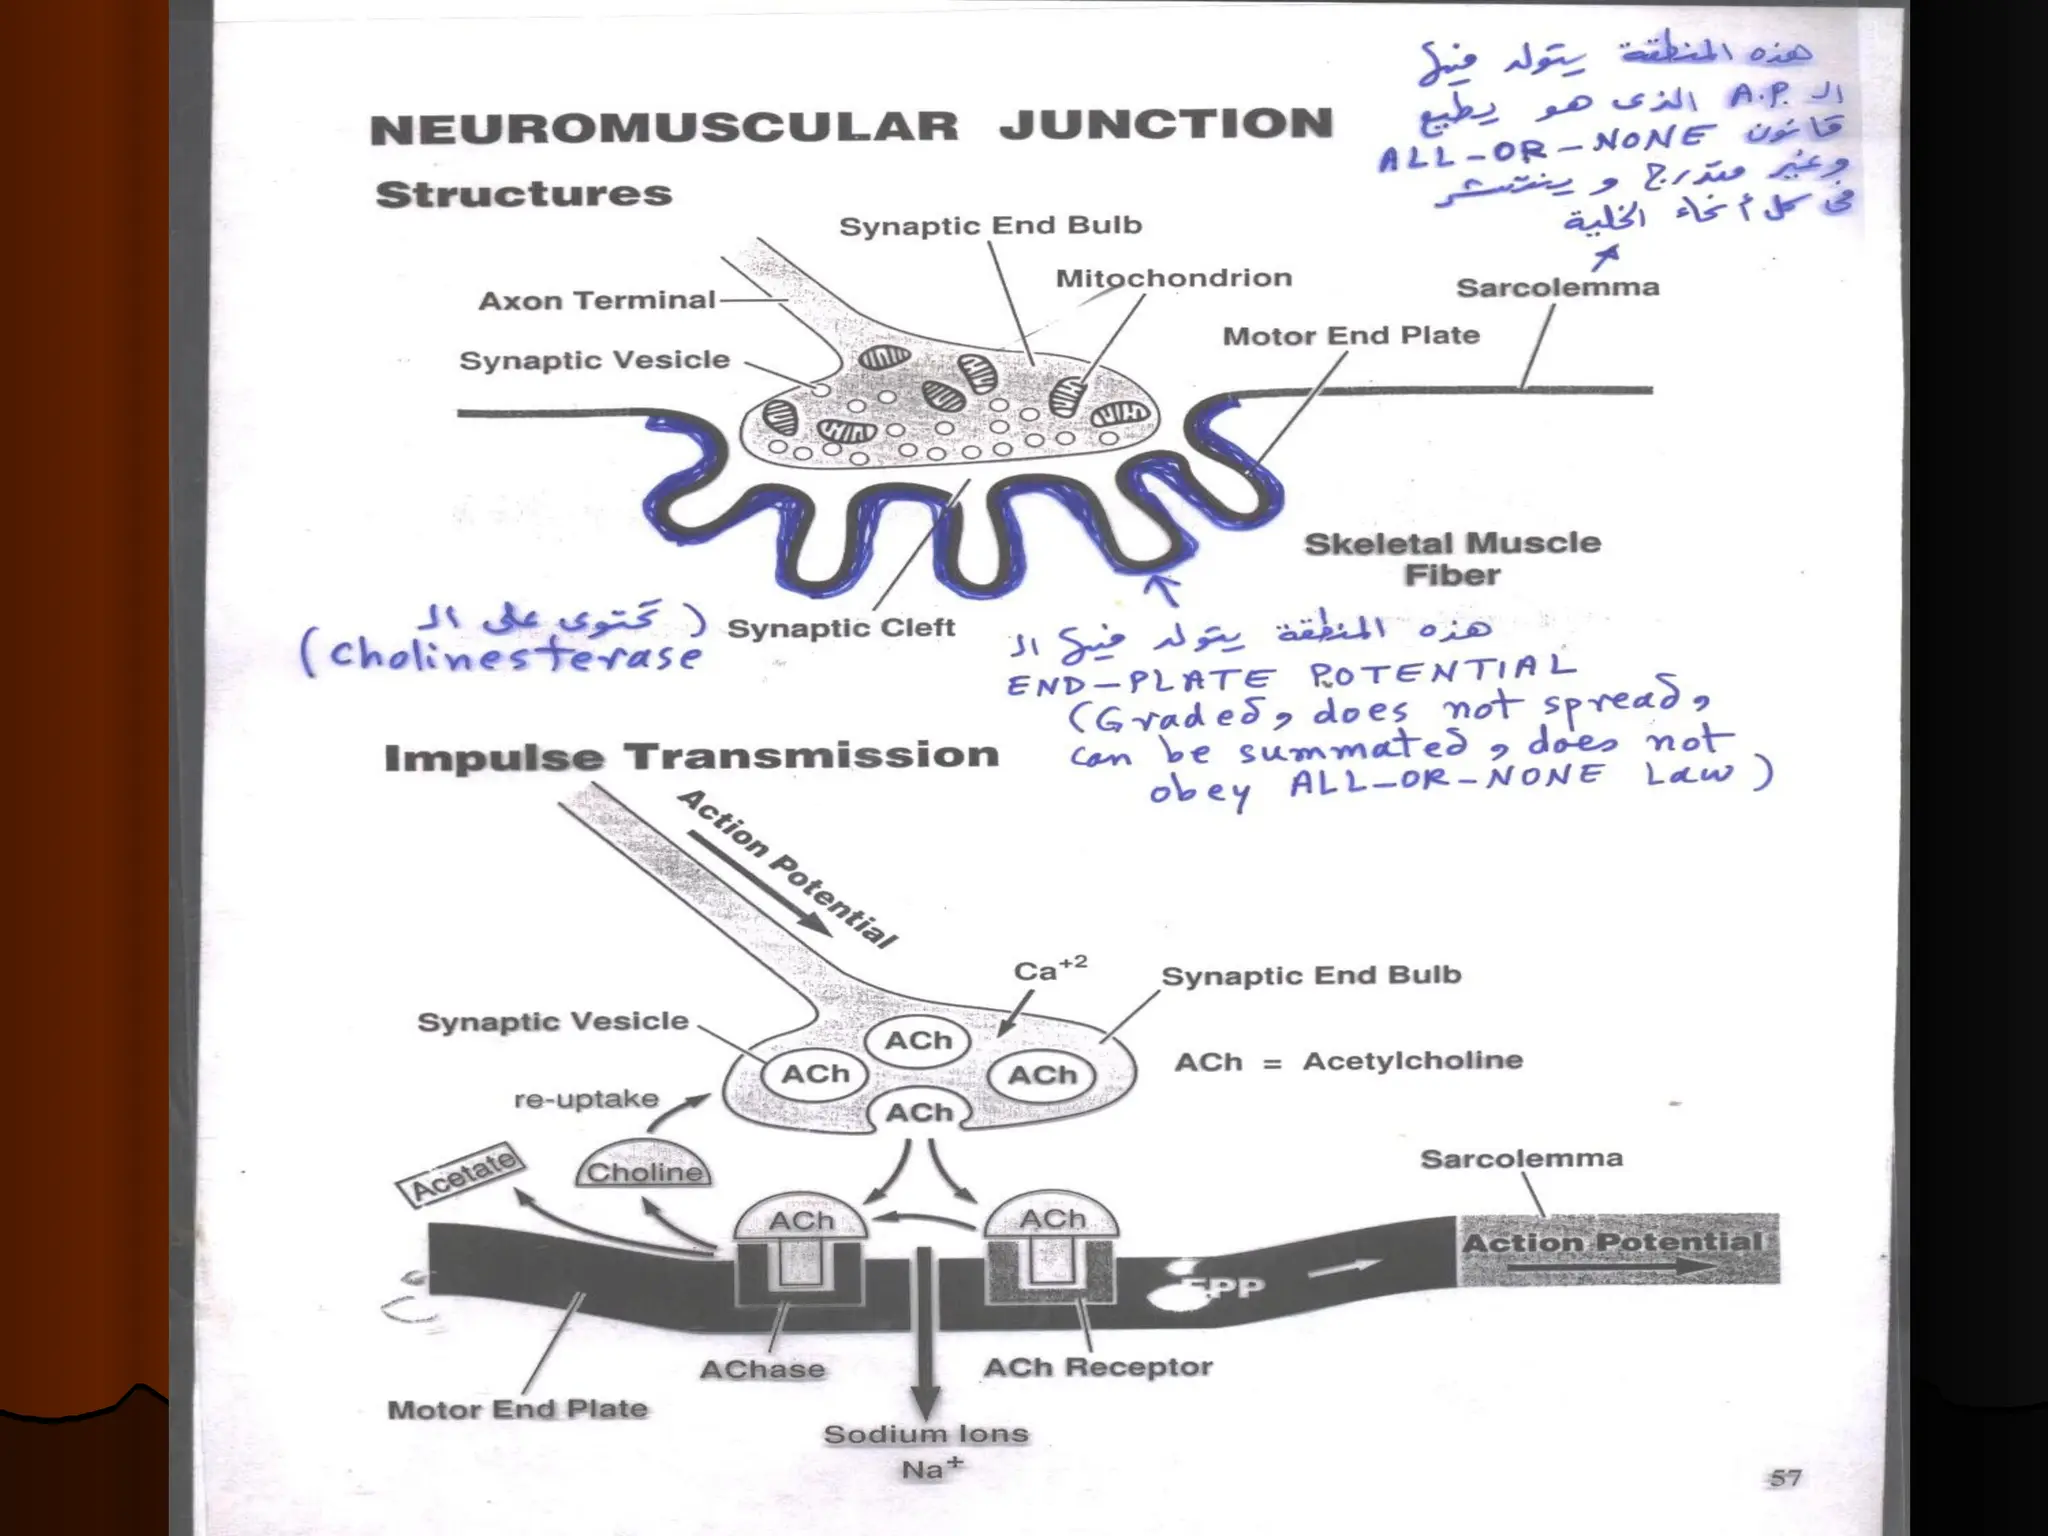 هذه المنطقة يتولد فيها
الـ A.P. الذى هو يطيع
قانون ALL-OR-NONE
وغير متدرج و ينتشر
فى كل أنحاء الخلية
NEUROMUSCULAR JUNCTION
Structures
Synaptic End Bulb
Mitochondrion
Sarcolemma
Axon Terminal
Motor End Plate
Synaptic Vesicle
Skeletal Muscle
Fiber
Synaptic Cleft
(تحتوى على الـ
Cholinesterase)
هذه المنطقة يتولد فيها الـ
END-PLATE POTENTIAL
(Graded, does not spread,
can be summated, does not
obey ALL-OR-NONE Law)
Impulse Transmission
Action Potential
Ca+2
Synaptic End Bulb
Synaptic Vesicle
ACh
ACh
ACh
ACh
ACh = Acetylcholine
re-uptake
Acetate
Choline
Sarcolemma
ACh
ACh
Action Potential
EPP
AChase
ACh Receptor
Motor End Plate
Sodium Ions
Na+
57